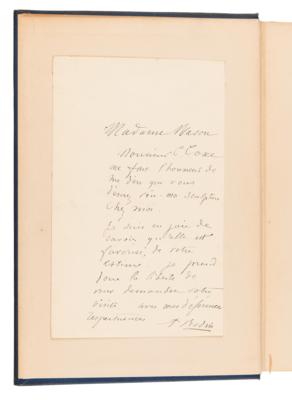 Madame Mason
Monsieur C Coxe
me fait l'honneur de
me dire que vous
désirez voir ma sculpture
chez moi.
Je suis en joie de
savoir qu'elle est
favorisée de votre
estime je prend
donc la liberté de
vous demander votre
visite avec mes déférences
respectueuses
A Rodin